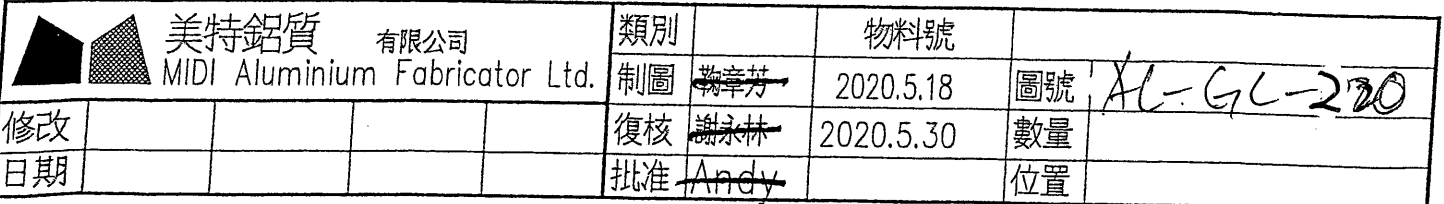 美特鋁質 有限公司
MIDI Aluminium Fabricator Ltd.
類別 物料號
制圖 鞠章芳 2020.5.18 圖號 AL-GL-220
修改 復核 謝永林 2020.5.30 數量
日期 批准 Andy 位置